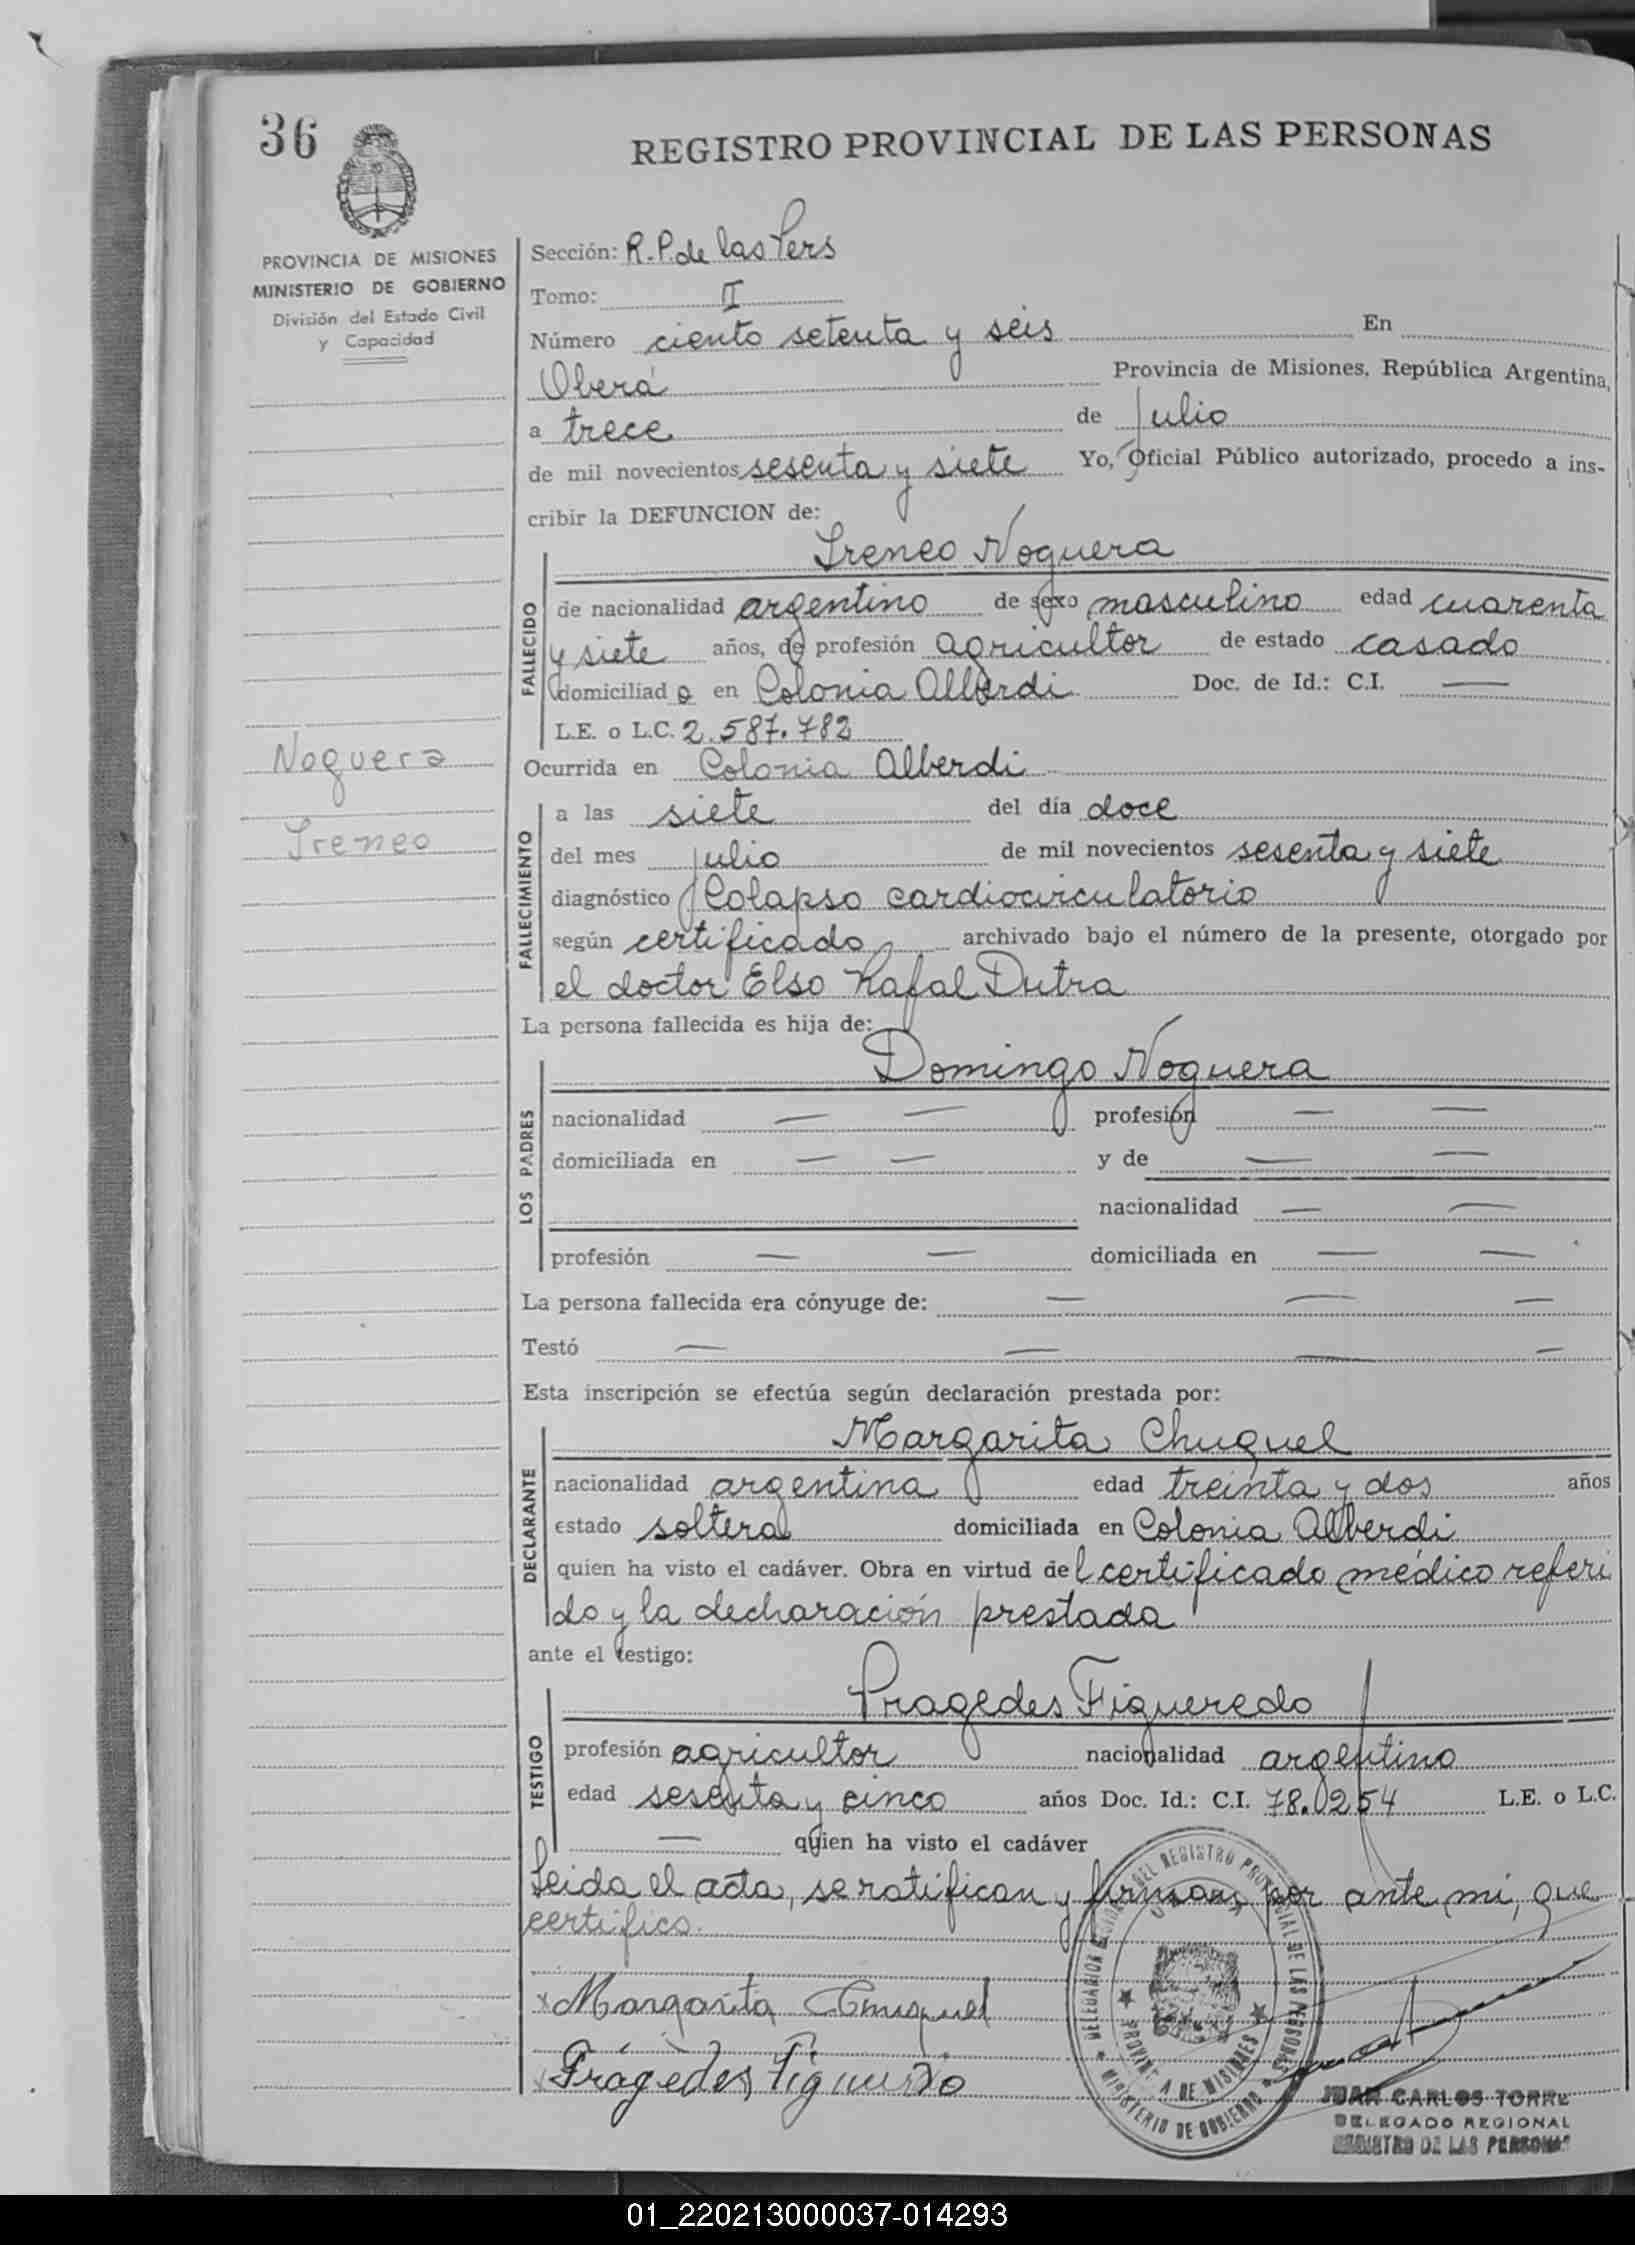 36
REGISTRO PROVINCIAL DE LAS PERSONAS
PROVINCIA DE MISIONES
MINISTERIO DE GOBIERNO
División del Estado Civil
y Capacidad
Sección: R.P. de las Pers
Tomo: II
Número ciento setenta y seis En
Oberá Provincia de Misiones, República Argentina,
a trece de Julio
de mil novecientos sesenta y siete Yo, Oficial Público autorizado, procedo a ins-
cribir la DEFUNCION de:
Ireneo Noguera
FALLECIDO
de nacionalidad argentino de sexo masculino edad cuarenta
y siete años, de profesión agricultor de estado casado
domiciliado en Colonia Alberdi Doc. de Id.: C.I. —
L.E. o L.C. 2.587.782
Noguera
Ireneo
Ocurrida en Colonia Alberdi
FALLECIMIENTO
a las siete del día doce
del mes julio de mil novecientos sesenta y siete
diagnóstico Colapso cardiocirculatorio
según certificado archivado bajo el número de la presente, otorgado por
el doctor Elso Rafal Dutra
La persona fallecida es hija de:
Domingo Noguera
LOS PADRES
nacionalidad — — profesión — —
domiciliada en — — y de — —
nacionalidad — —
profesión — — domiciliada en — —
La persona fallecida era cónyuge de: — — —
Testó — — — —
Esta inscripción se efectúa según declaración prestada por:
Margarita Chuquel
DECLARANTE
nacionalidad argentina edad treinta y dos años
estado soltera domiciliada en Colonia Alberdi
quien ha visto el cadáver. Obra en virtud del certificado médico referi
do y la declaración prestada
ante el testigo:
Pragedes Figueredo
TESTIGO
profesión agricultor nacionalidad argentino
edad sesenta y cinco años Doc. Id.: C.I. 78.0254 L.E. o L.C.
— quien ha visto el cadáver
Leida el acta, se ratifican y firman por ante mi, que
certifico.
x Margarita Chuquel
x Prágedes Figueredo
DELEGACION REGIONAL DEL REGISTRO PROVINCIAL DE LAS PERSONAS
OBERA
PROVINCIA DE MISIONES
MINISTERIO DE GOBIERNO
JUAN CARLOS TORRE
DELEGADO REGIONAL
REGISTRO DE LAS PERSONAS
01_220213000037-014293